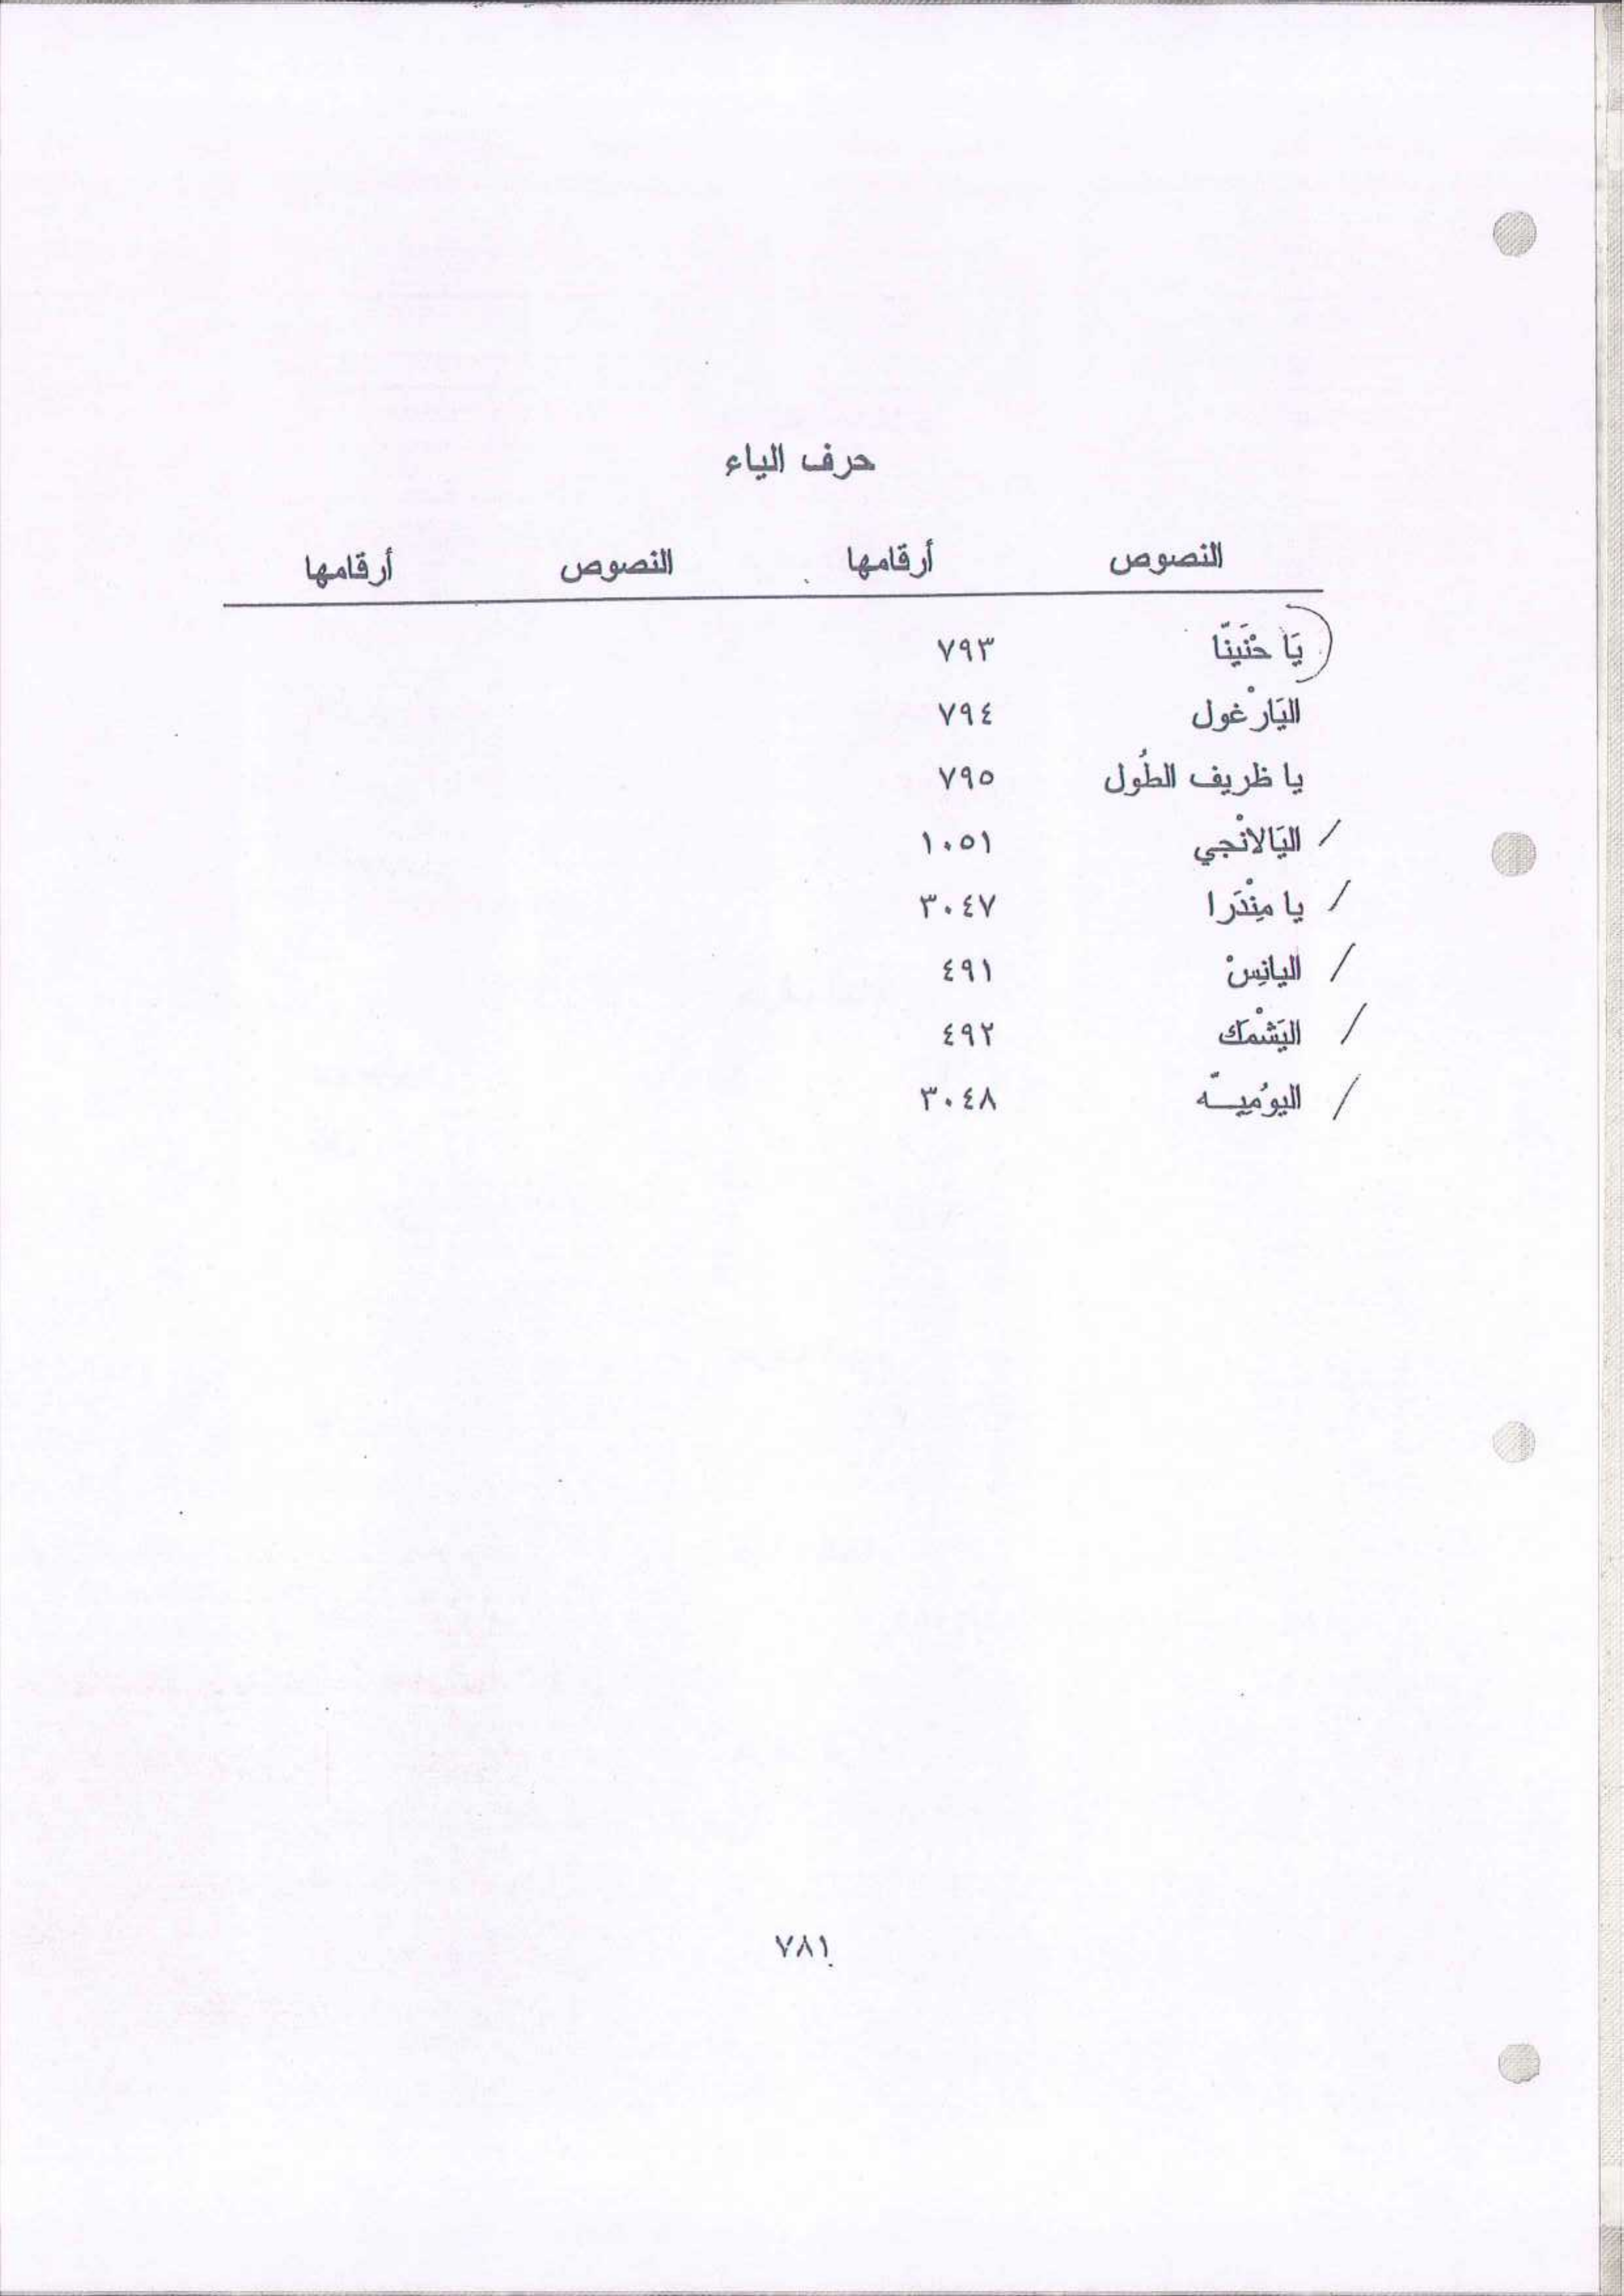 حرف الياء
النصوص أرقامها النصوص أرقامها
يَا حْنَينَّا ٧٩٣
اليَارْغول ٧٩٤
يا ظريف الطُول ٧٩٥
اليَالانْجي ١٠٥١
يا مِنْدَرا ٣٠٤٧
اليانِسْ ٤٩١
اليَشْمَك ٤٩٢
اليوُمِيـّه ٣٠٤٨
٧٨١